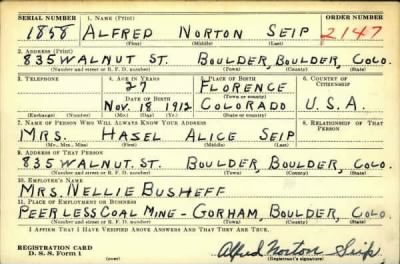 SERIAL NUMBER 1. NAME (Print) ORDER NUMBER
1858 ALFRED NORTON SEIP 2147
(First) (Middle) (Last)
2. ADDRESS (Print)
835 WALNUT ST. BOULDER, BOULDER, COLO.
(Number and street or R. F. D. number) (Town) (County) (State)
3. TELEPHONE 4. AGE IN YEARS 5. PLACE OF BIRTH 6. COUNTRY OF CITIZENSHIP
27 FLORENCE
DATE OF BIRTH (Town or county)
NOV. 18, 1912 COLORADO U.S.A.
(Exchange) (Number) (Mo.) (Day) (Yr.) (State or country)
7. NAME OF PERSON WHO WILL ALWAYS KNOW YOUR ADDRESS 8. RELATIONSHIP OF THAT PERSON
MRS. HASEL ALICE SEIP
(Mr., Mrs., Miss) (First) (Middle) (Last)
9. ADDRESS OF THAT PERSON
835 WALNUT ST. BOULDER, BOULDER, COLO.
(Number and street or R. F. D. number) (Town) (County) (State)
10. EMPLOYER'S NAME
MRS. NELLIE BUSHEFF
11. PLACE OF EMPLOYMENT OR BUSINESS
PEERLESS COAL MINE - GORHAM, BOULDER, COLO.
(Number and street or R. F. D. number) (Town) (County) (State)
I AFFIRM THAT I HAVE VERIFIED ABOVE ANSWERS AND THAT THEY ARE TRUE.
REGISTRATION CARD
D. S. S. Form 1 Alfred Norton Seip
(Registrant's signature)